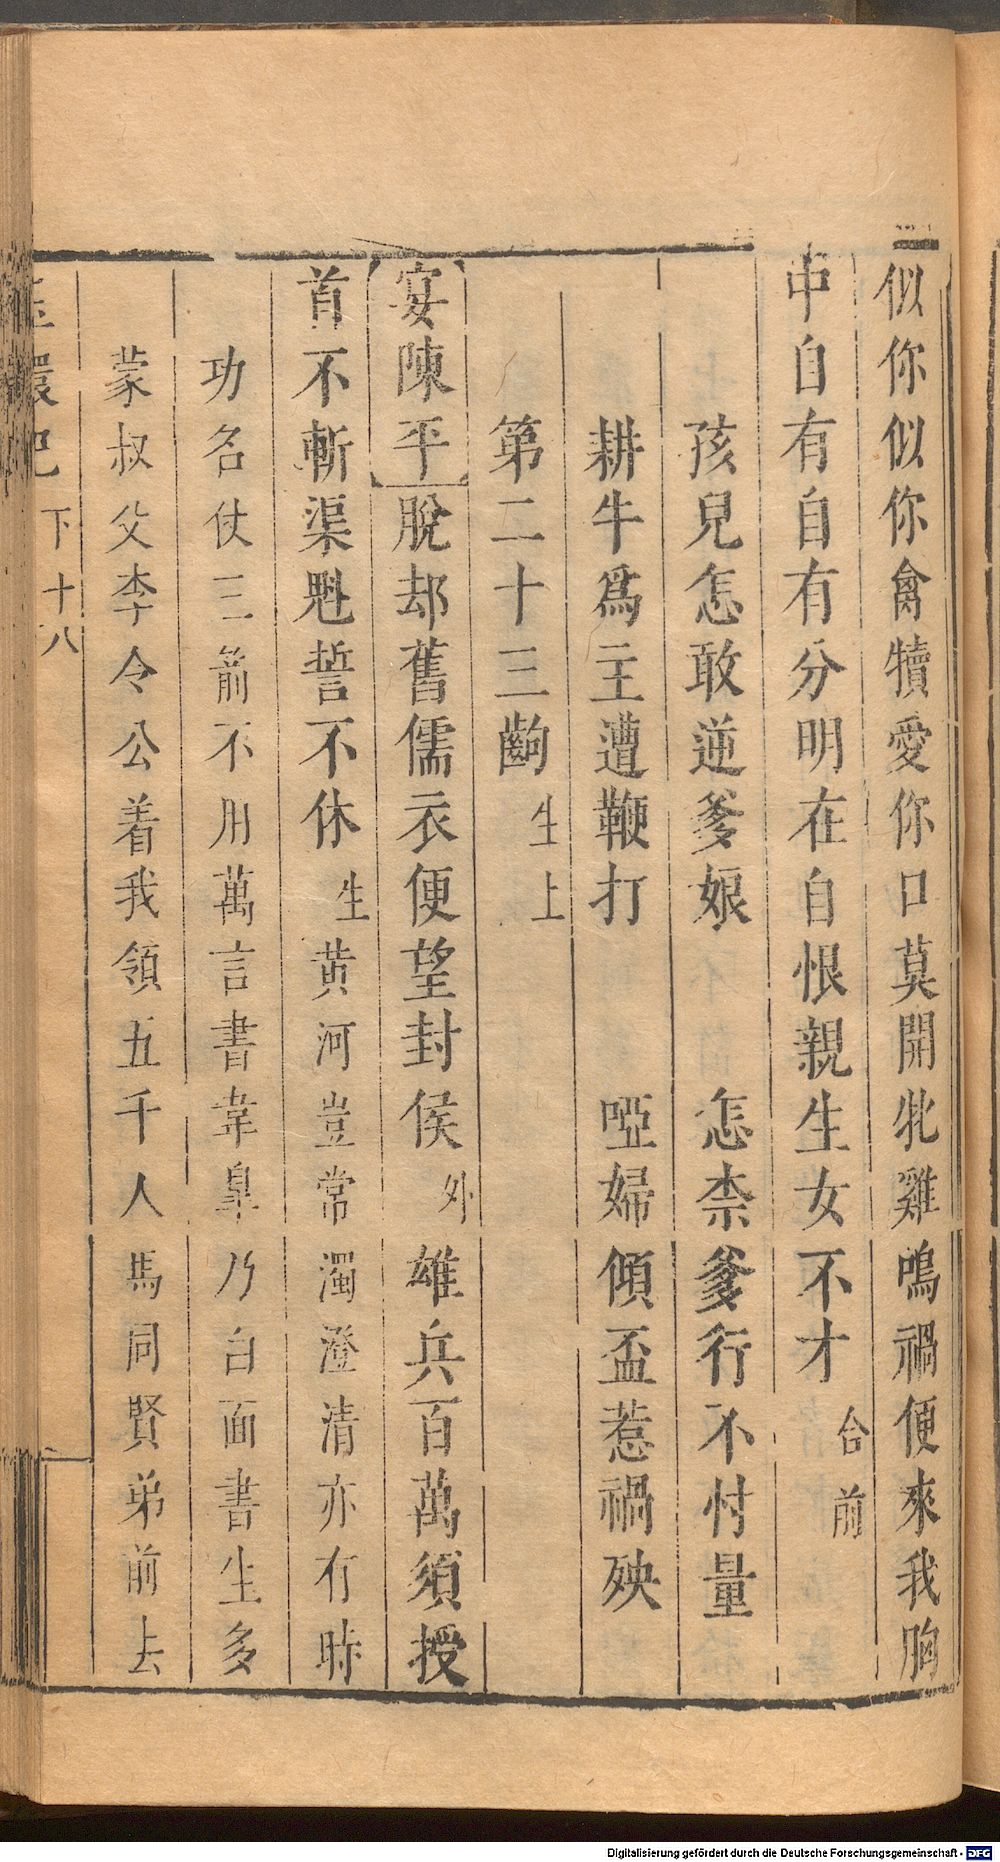 似你似你禽犢愛你口莫開牝雞鳴禍便來我胸
中自有自有分明在自恨親生女不才合前
孩兒怎敢逆爹娘　怎柰爹行不忖量
耕牛爲主遭鞭打　啞婦傾盃惹禍殃
第二十三齣生上
安陳平脫却舊儒衣便望封侯外雄兵百萬須授
首不斬渠魁誓不休生黄河豈常濁澄清亦有時
功名仗三箭不用萬言書韋臯乃白面書生多
蒙叔父李令公着我領五千人馬同賢弟前去
玉環記　下　十八
Digitalisierung gefördert durch die Deutsche Forschungsgemeinschaft - DFG